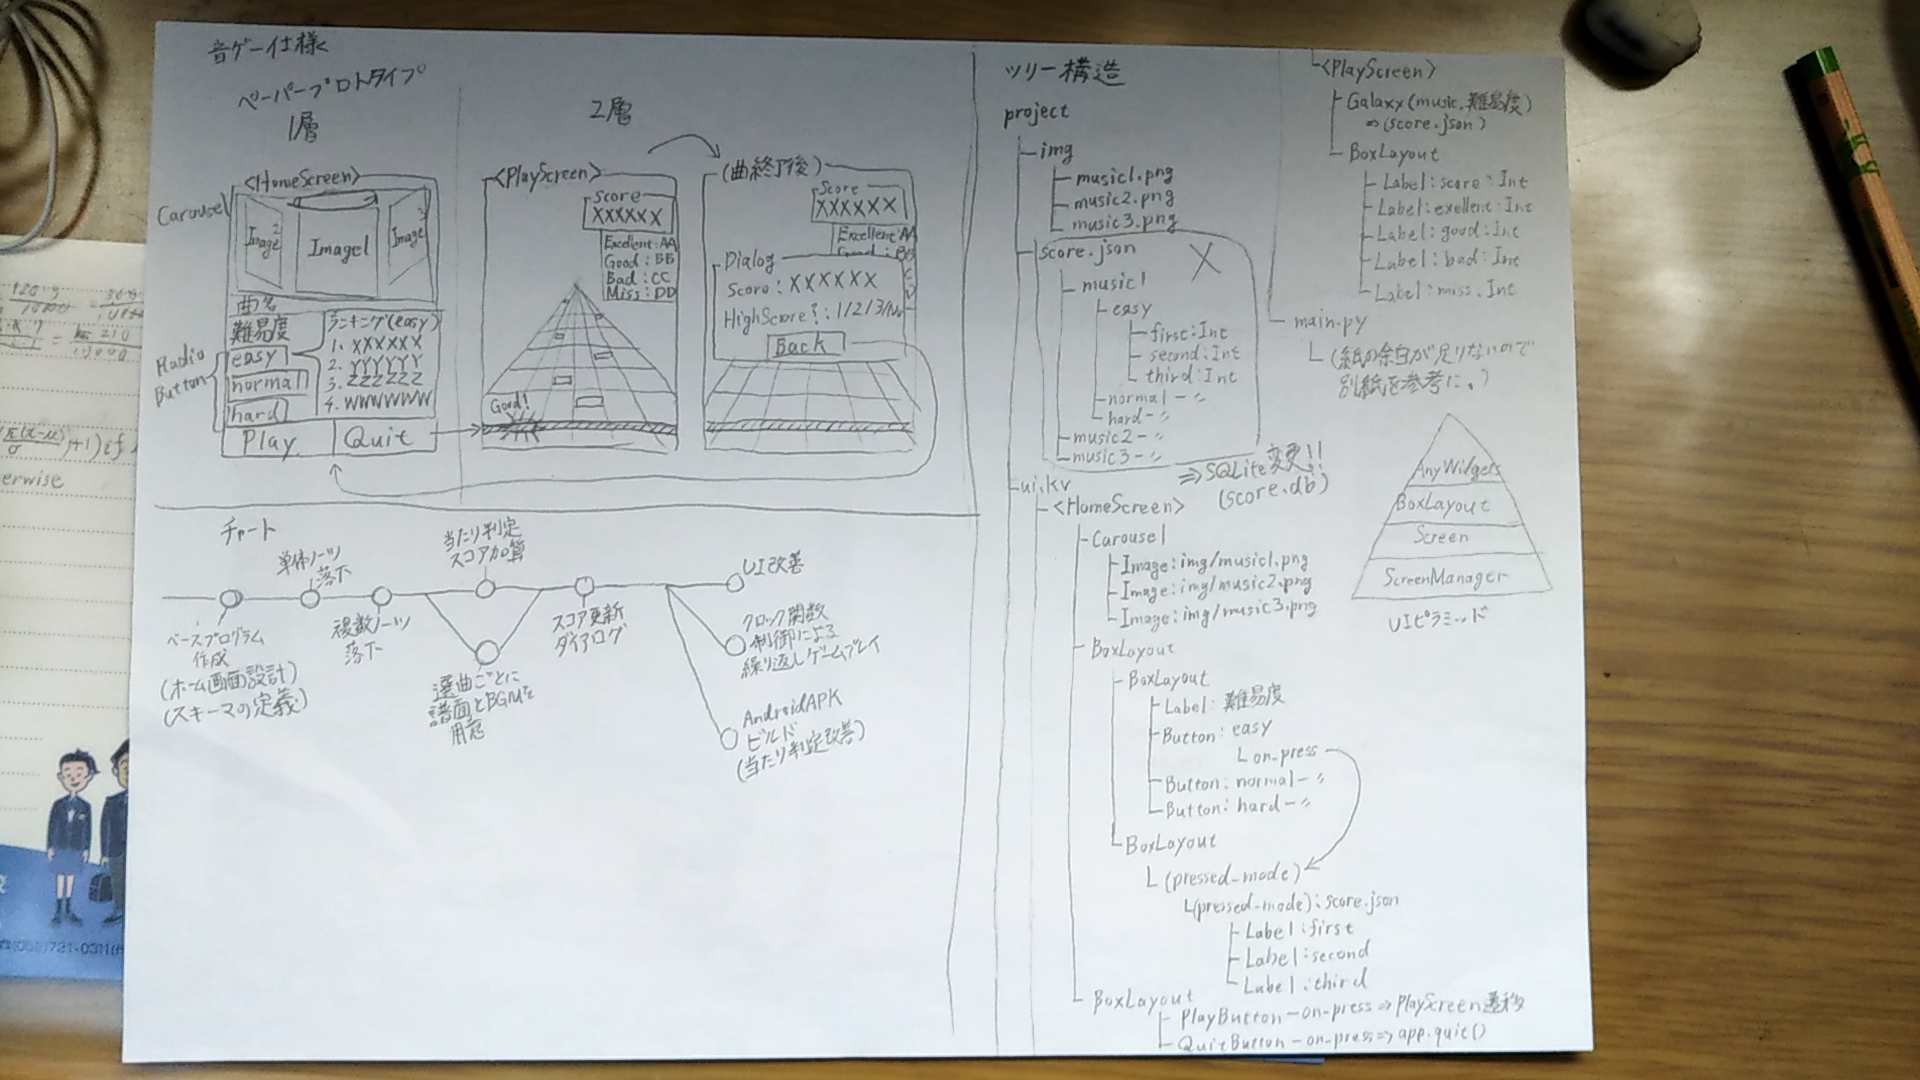 音ゲー仕様
ペーパープロトタイプ
1層
<HomeScreen>
Carousel
Image2
Image1
Image3
曲名
難易度
ランキング(easy)
1. XXXXXX
2. YYYYYY
3. ZZZZZZ
4. WWWWWW
Radio
Button
easy
normal
hard
Play
Quit
2層
<PlayScreen>
Score
XXXXXX
Excellent:AA
Good:BB
Bad:CC
Miss:DD
Good!
(曲終了後)
Score
XXXXXX
Excellent:AA
Dialog
Score:XXXXXX
HighScore?:1/2/3/No
Back
チャート
ベースプログラム
作成
(ホーム画面設計)
(スキーマの定義)
単体ノーツ
落下
複数ノーツ
落下
当たり判定
スコア加算
選曲ごとに
譜面とBGMを
用意
スコア更新
ダイアログ
UI改善
クロック関数
制御による
繰り返しゲームプレイ
AndroidAPK
ビルド
(当たり判定改善)
ツリー構造
project
img
music1.png
music2.png
music3.png
score.json
X
music1
easy
first:Int
second:Int
third:Int
normal-〃
hard-〃
music2-〃
music3-〃
⇒SQLite変更!!
(score.db)
ui.kv
<HomeScreen>
Carousel
Image:img/music1.png
Image:img/music2.png
Image:img/music3.png
BoxLayout
BoxLayout
Label:難易度
Button:easy
on_press
Button:normal-〃
Button:hard-〃
BoxLayout
(pressed-mode)
(pressed-mode):score.json
Label:first
Label:second
Label:third
BoxLayout
PlayButton-on-press⇒PlayScreen遷移
QuitButton-on-press⇒app.quit()
<PlayScreen>
Galaxy(music,難易度)
⇒(score.json)
BoxLayout
Label:score:Int
Label:exellent:Int
Label:good:Int
Label:bad:Int
Label:miss.Int
main.py
(紙の余白が足りないので
別紙を参考に。)
AnyWidgets
BoxLayout
Screen
ScreenManager
UIピラミッド
erwise